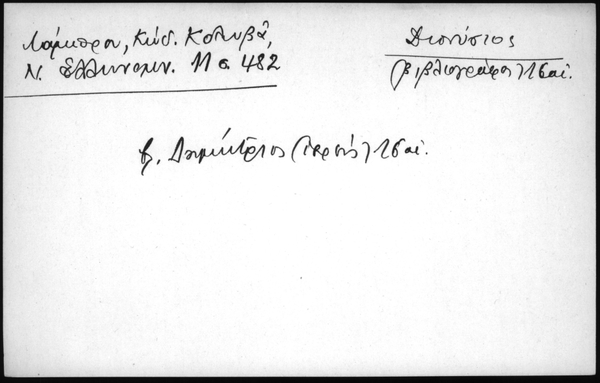 Λάμπρου, Κώδ. Κολυβᾶ,
Ν. Ἑλληνομν. 11 σ. 482
Διονύσιος
(βιβλιογράφος) 16 αἰ.
βλ. Δημήτριος (ἱερεύς) 16 αἰ.